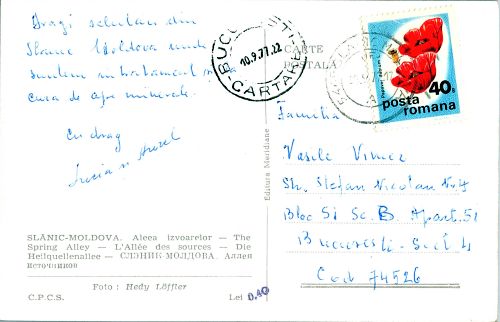 Dragi salutari din
Slanic Moldova unde
suntem in tratament
cura de ape minerale.
Cu drag
Lucia si Aurel
SLĂNIC-MOLDOVA. Aleea izvoarelor — The
Spring Alley — L'Allée des sources — Die
Heilquellenallee — СЛЭНИК-МОЛДОВА. Аллея
источников
Foto : Hedy Löffler
C.P.C.S. Lei 0.40
Editura Meridiane
CARTE
POSTALA
10.9.77.22
CARTARE
posta
romana
40 B
Familia
Vasile
Str. Stefan Nicolau Nr. 4
Bloc 51 Sc. B Apart. 51
Bucuresti - Sect. 4
Cod 74526